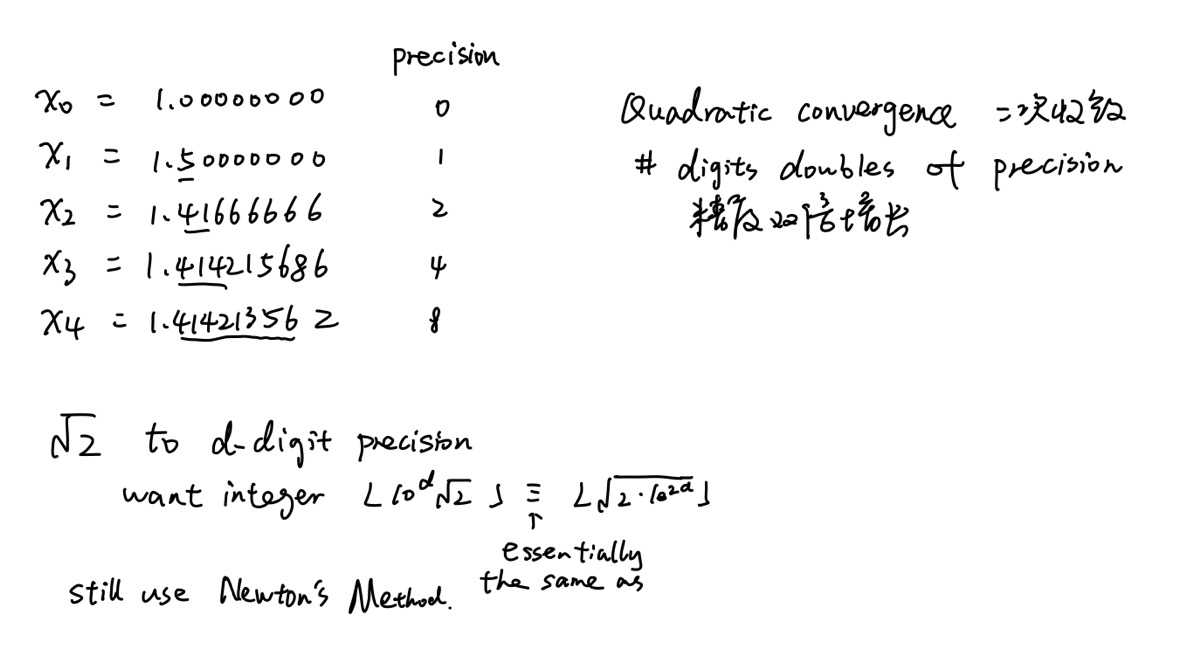 precision
x₀ = 1.00000000 0
x₁ = 1.50000000 1
x₂ = 1.41666666 2
x₃ = 1.414215686 4
x₄ = 1.414213562 8
Quadratic convergence 二次收敛
# digits doubles of precision
精度双倍增长
√2 to d-digit precision
want integer ⌊10^d √2⌋ ≡ ⌊√(2·10^(2d))⌋
↑
essentially
the same as
still use Newton's Method.